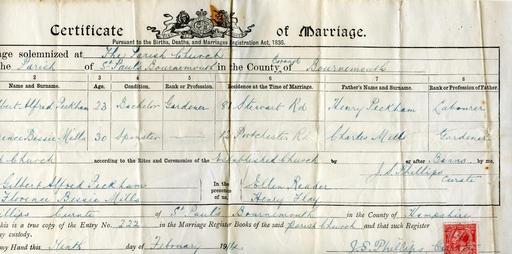 Certificate of Marriage.
Pursuant to the Births, Deaths, and Marriages Registration Act, 1836.
age solemnized at The Parish Church
the Parish of St Pauls Bournemouth in the County Borough of Bournemouth
2 3 4 5 6 7 8
Name and Surname. Age. Condition. Rank or Profession. Residence at the Time of Marriage. Father's Name and Surname. Rank or Profession of Father.
lbert Alfred Peckham 23 Bachelor Gardener 8 Stewart Rd Henry Peckham Labourer
rence Bessie Mells 30 Spinster — Portchester Rd Charles Mells Gardener
Church according to the Rites and Ceremonies of the Established Church by or after Banns by me,
J.S. Phillips
Curate
Gilbert Alfred Peckham In the presence of us, Ellen Reader
Florence Bessie Mells Henry
illips Curate of St Pauls Bournemouth in the County of Hampshire
is a true copy of the Entry No. 222 in the Marriage Register Books of the said Parish Church and that such Register
y custody.
my Hand this day of February 191
J.S. Phillips